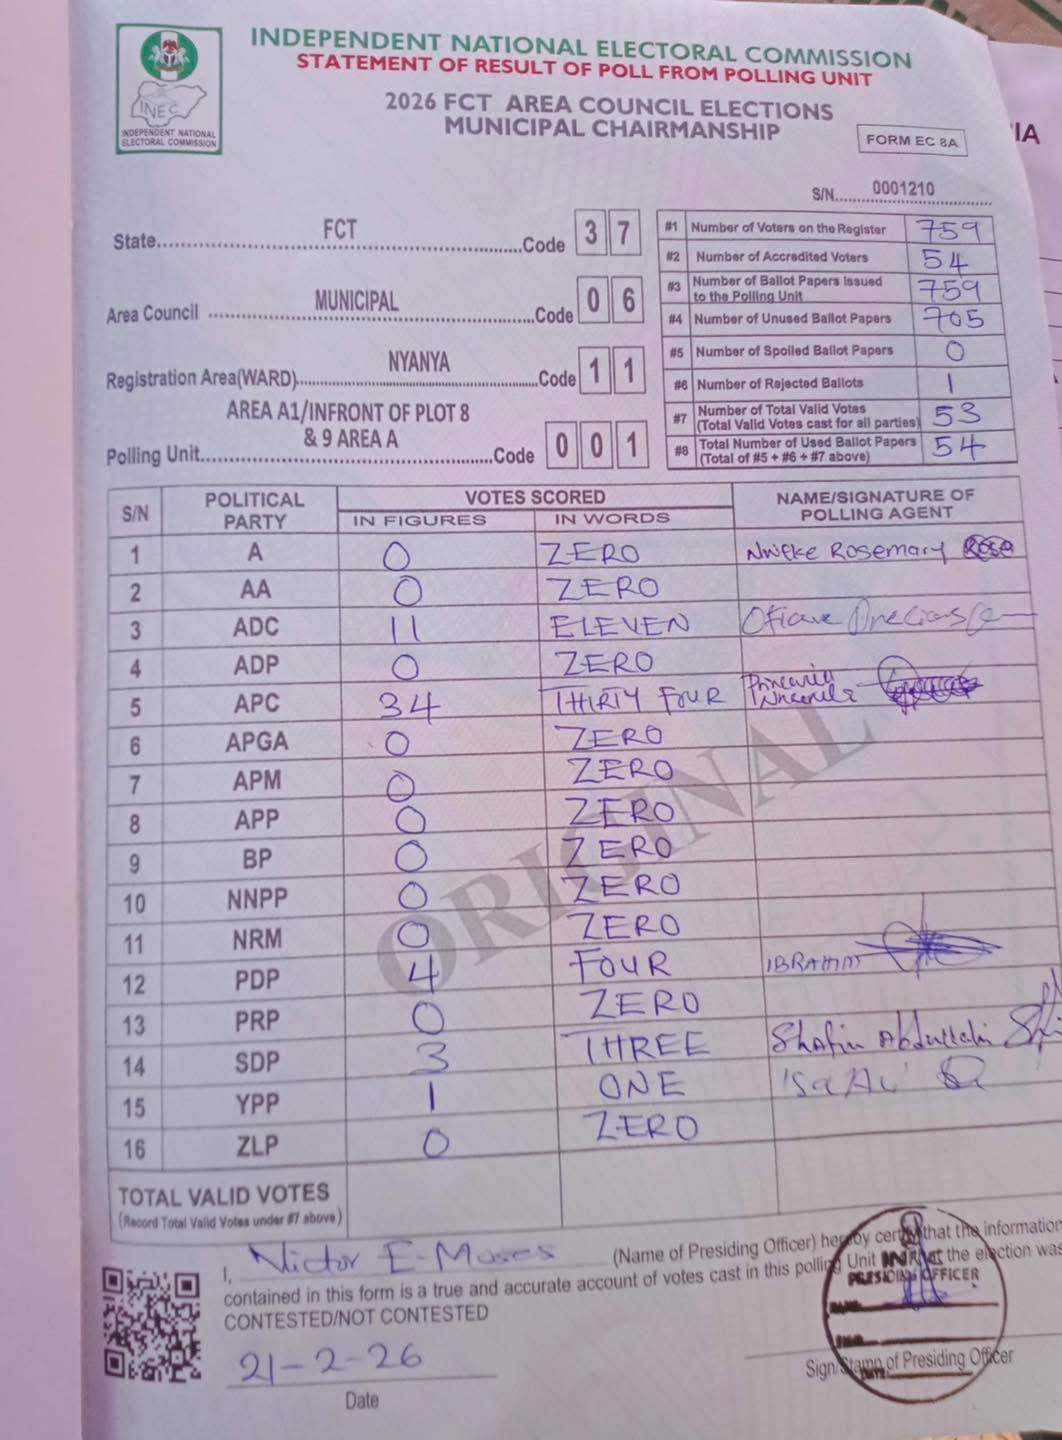 INDEPENDENT NATIONAL ELECTORAL COMMISSION
STATEMENT OF RESULT OF POLL FROM POLLING UNIT
2026 FCT AREA COUNCIL ELECTIONS
MUNICIPAL CHAIRMANSHIP
FORM EC 8A
INEC
INDEPENDENT NATIONAL
ELECTORAL COMMISSION
IA
S/N. 0001210
State FCT Code 3 7
Area Council MUNICIPAL Code 0 6
Registration Area(WARD) NYANYA Code 1 1
AREA A1/INFRONT OF PLOT 8
& 9 AREA A
Polling Unit Code 0 0 1
#1 Number of Voters on the Register 759
#2 Number of Accredited Voters 54
#3 Number of Ballot Papers Issued
to the Polling Unit 759
#4 Number of Unused Ballot Papers 705
#5 Number of Spoiled Ballot Papers 0
#6 Number of Rejected Ballots 1
#7 Number of Total Valid Votes
(Total Valid Votes cast for all parties) 53
#8 Total Number of Used Ballot Papers
(Total of #5 + #6 + #7 above) 54
S/N POLITICAL PARTY VOTES SCORED NAME/SIGNATURE OF POLLING AGENT
IN FIGURES IN WORDS
1 A 0 ZERO Nweke Rosemary Rose
2 AA 0 ZERO
3 ADC 11 ELEVEN
4 ADP 0 ZERO
5 APC 34 THIRTY FOUR
6 APGA 0 ZERO
7 APM 0 ZERO
8 APP 0 ZERO
9 BP 0 ZERO
10 NNPP 0 ZERO
11 NRM 0 ZERO
12 PDP 4 FOUR IBRAHIM
13 PRP 0 ZERO
14 SDP 3 THREE Abdullahi
15 YPP 1 ONE
16 ZLP 0 ZERO
ORIGINAL
TOTAL VALID VOTES
(Record Total Valid Votes under #7 above)
I, Victor E. Moses (Name of Presiding Officer) hereby certify that the information
contained in this form is a true and accurate account of votes cast in this polling Unit at the election was
CONTESTED/NOT CONTESTED
PRESIDING OFFICER
21-2-26
Date
Sign/Stamp of Presiding Officer